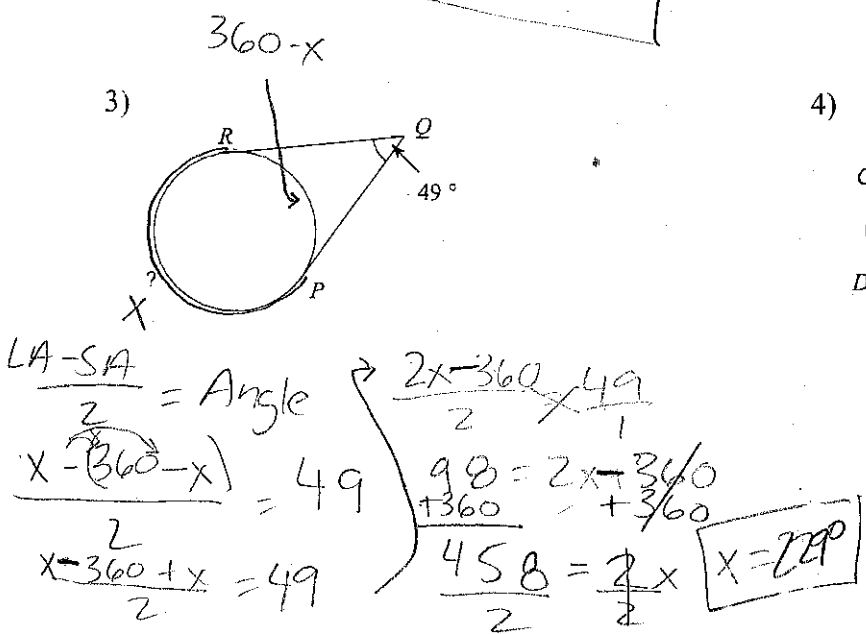 360-x
3)
4)
R
Q
49°
?
P
X
D
LA-SA/2 = Angle
x-(360-x)/2 = 49
x-360+x/2 = 49
2x-360/2 × 49/1
98 = 2x-360
+360 = +360
458/2 = 2x/2
x=229°